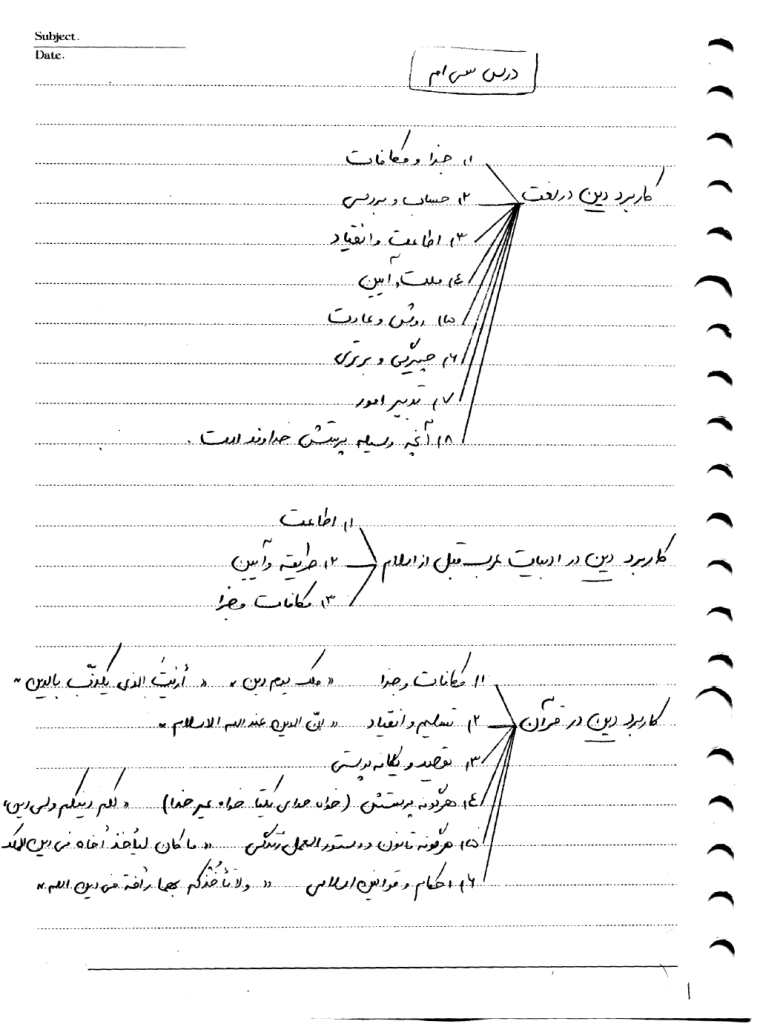 Subject.
Date.
درس سی ام
کاربرد دین در لغت
۱) جزا و مکافات
۲) حساب و بررسی
۳) اطاعت و انقیاد
۴) ملت، آیین
۵) روش و عادت
۶) چیرگی و برتری
۷) تدبیر امور
۸) آنچه وسیله پرستش خداوند است.
کاربرد دین در ادبیات عرب قبل از اسلام
۱) اطاعت
۲) طریقه و آیین
۳) مکافات و جزا
کاربرد دین در قرآن
۱) مکافات و جزا « ملک یوم دین » « أرئیت الذی یکذّب بالدین »
۲) تسلیم و انقیاد « انّ الدین عند الله الاسلام »
۳) توحید و یگانه پرستی
۴) هرگونه پرستش (خواه خدای یکتا خواه غیر خدا) « لکم دینکم ولی دین »
۵) هرگونه قانون و دستور العمل زندگی « ما کان لیأخذ أخاه فی دین الملک
۶) احکام و قوانین اسلامی « ولا تأخذکم بهما رأفة فی دین الله »
۱